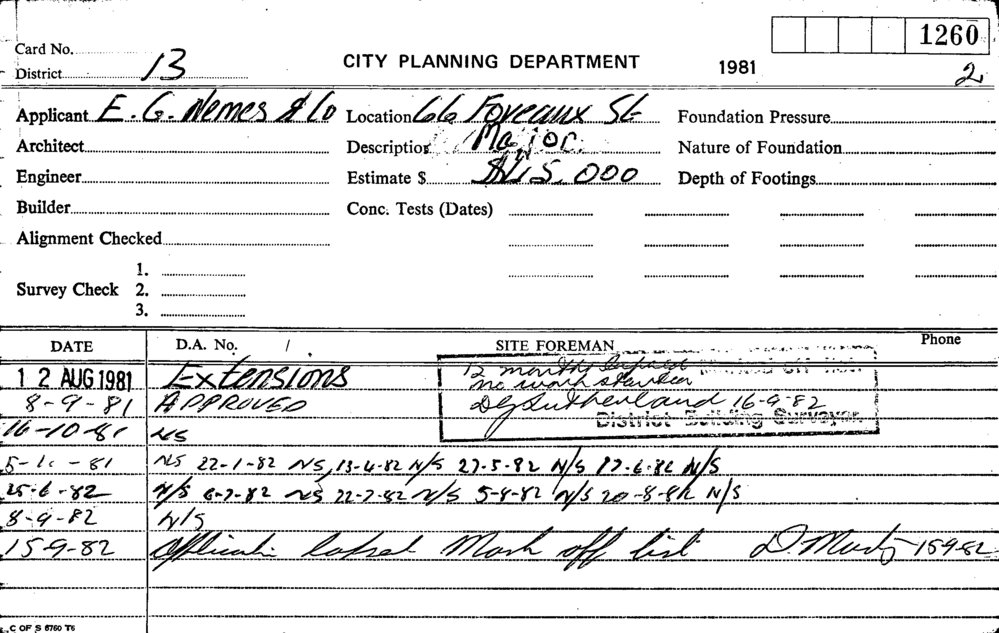 1260
Card No.
District 13
CITY PLANNING DEPARTMENT
1981
2
Applicant E. G. Nemes & Co
Location 66 Foveaux St
Foundation Pressure
Architect
Description Major
Nature of Foundation
Engineer
Estimate $ $115,000
Depth of Footings
Builder
Conc. Tests (Dates)
Alignment Checked
1.
Survey Check 2.
3.
DATE
D.A. No. /
SITE FOREMAN
Phone
12 AUG 1981 Extensions
12 months lapsed
no work started
8-9-81 APPROVED
Sutherland 16-9-82
District Building Surveyor
16-10-81 NS
81 NS 22-1-82 NS, 13-4-82 N/S 27-5-82 N/S 17-6-82 N/S
25-6-82 N/S 6-7-82 NS 22-7-82 N/S 5-8-82 N/S 20-8-82 N/S
8-9-82 N/S
15-9-82 Application lapsed Mark off list D. 15-9-82
C OF S 6760 T6